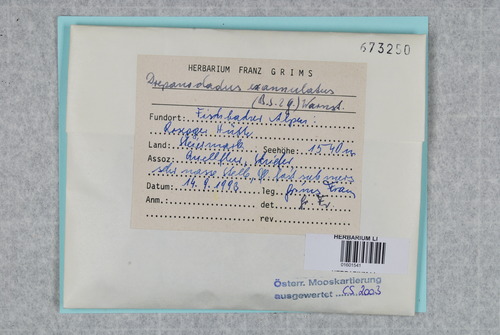 673250
HERBARIUM FRANZ GRIMS
Drepanocladus exannulatus
(B.S.G.) Warnst.
Fundort: Fischbacher Alpen:
Rosegger Hütte
Land: Steiermark Seehöhe: 1540 m
Assoz: Quellflur,
nasse Stelle,
Datum: 14.9.1993 leg. Grims Franz
Anm.: det. Gr. Fr.
rev.
HERBARIUM LI
Österr. Mooskartierung
ausgewertet CS 2003